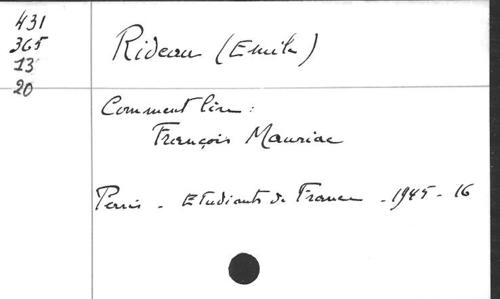 431
365
13
20
Rideau (Emile)
Comment lire :
François Mauriac
Paris - Etudiants de France - 1945 - 16